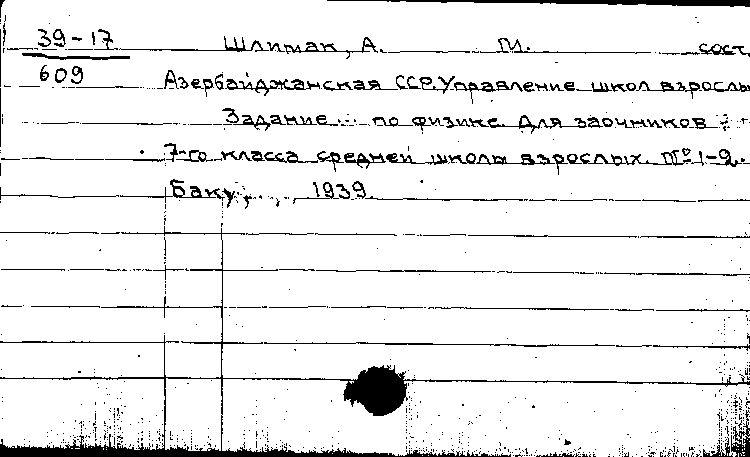 39-17 Шлитак, А. М. сост.
609 Азербайджанская ССР. Управление школ взрослы
Задание ... по физике. Для заочников
7-го класса средней школы взрослых. №1-2.
Баку, 1939.